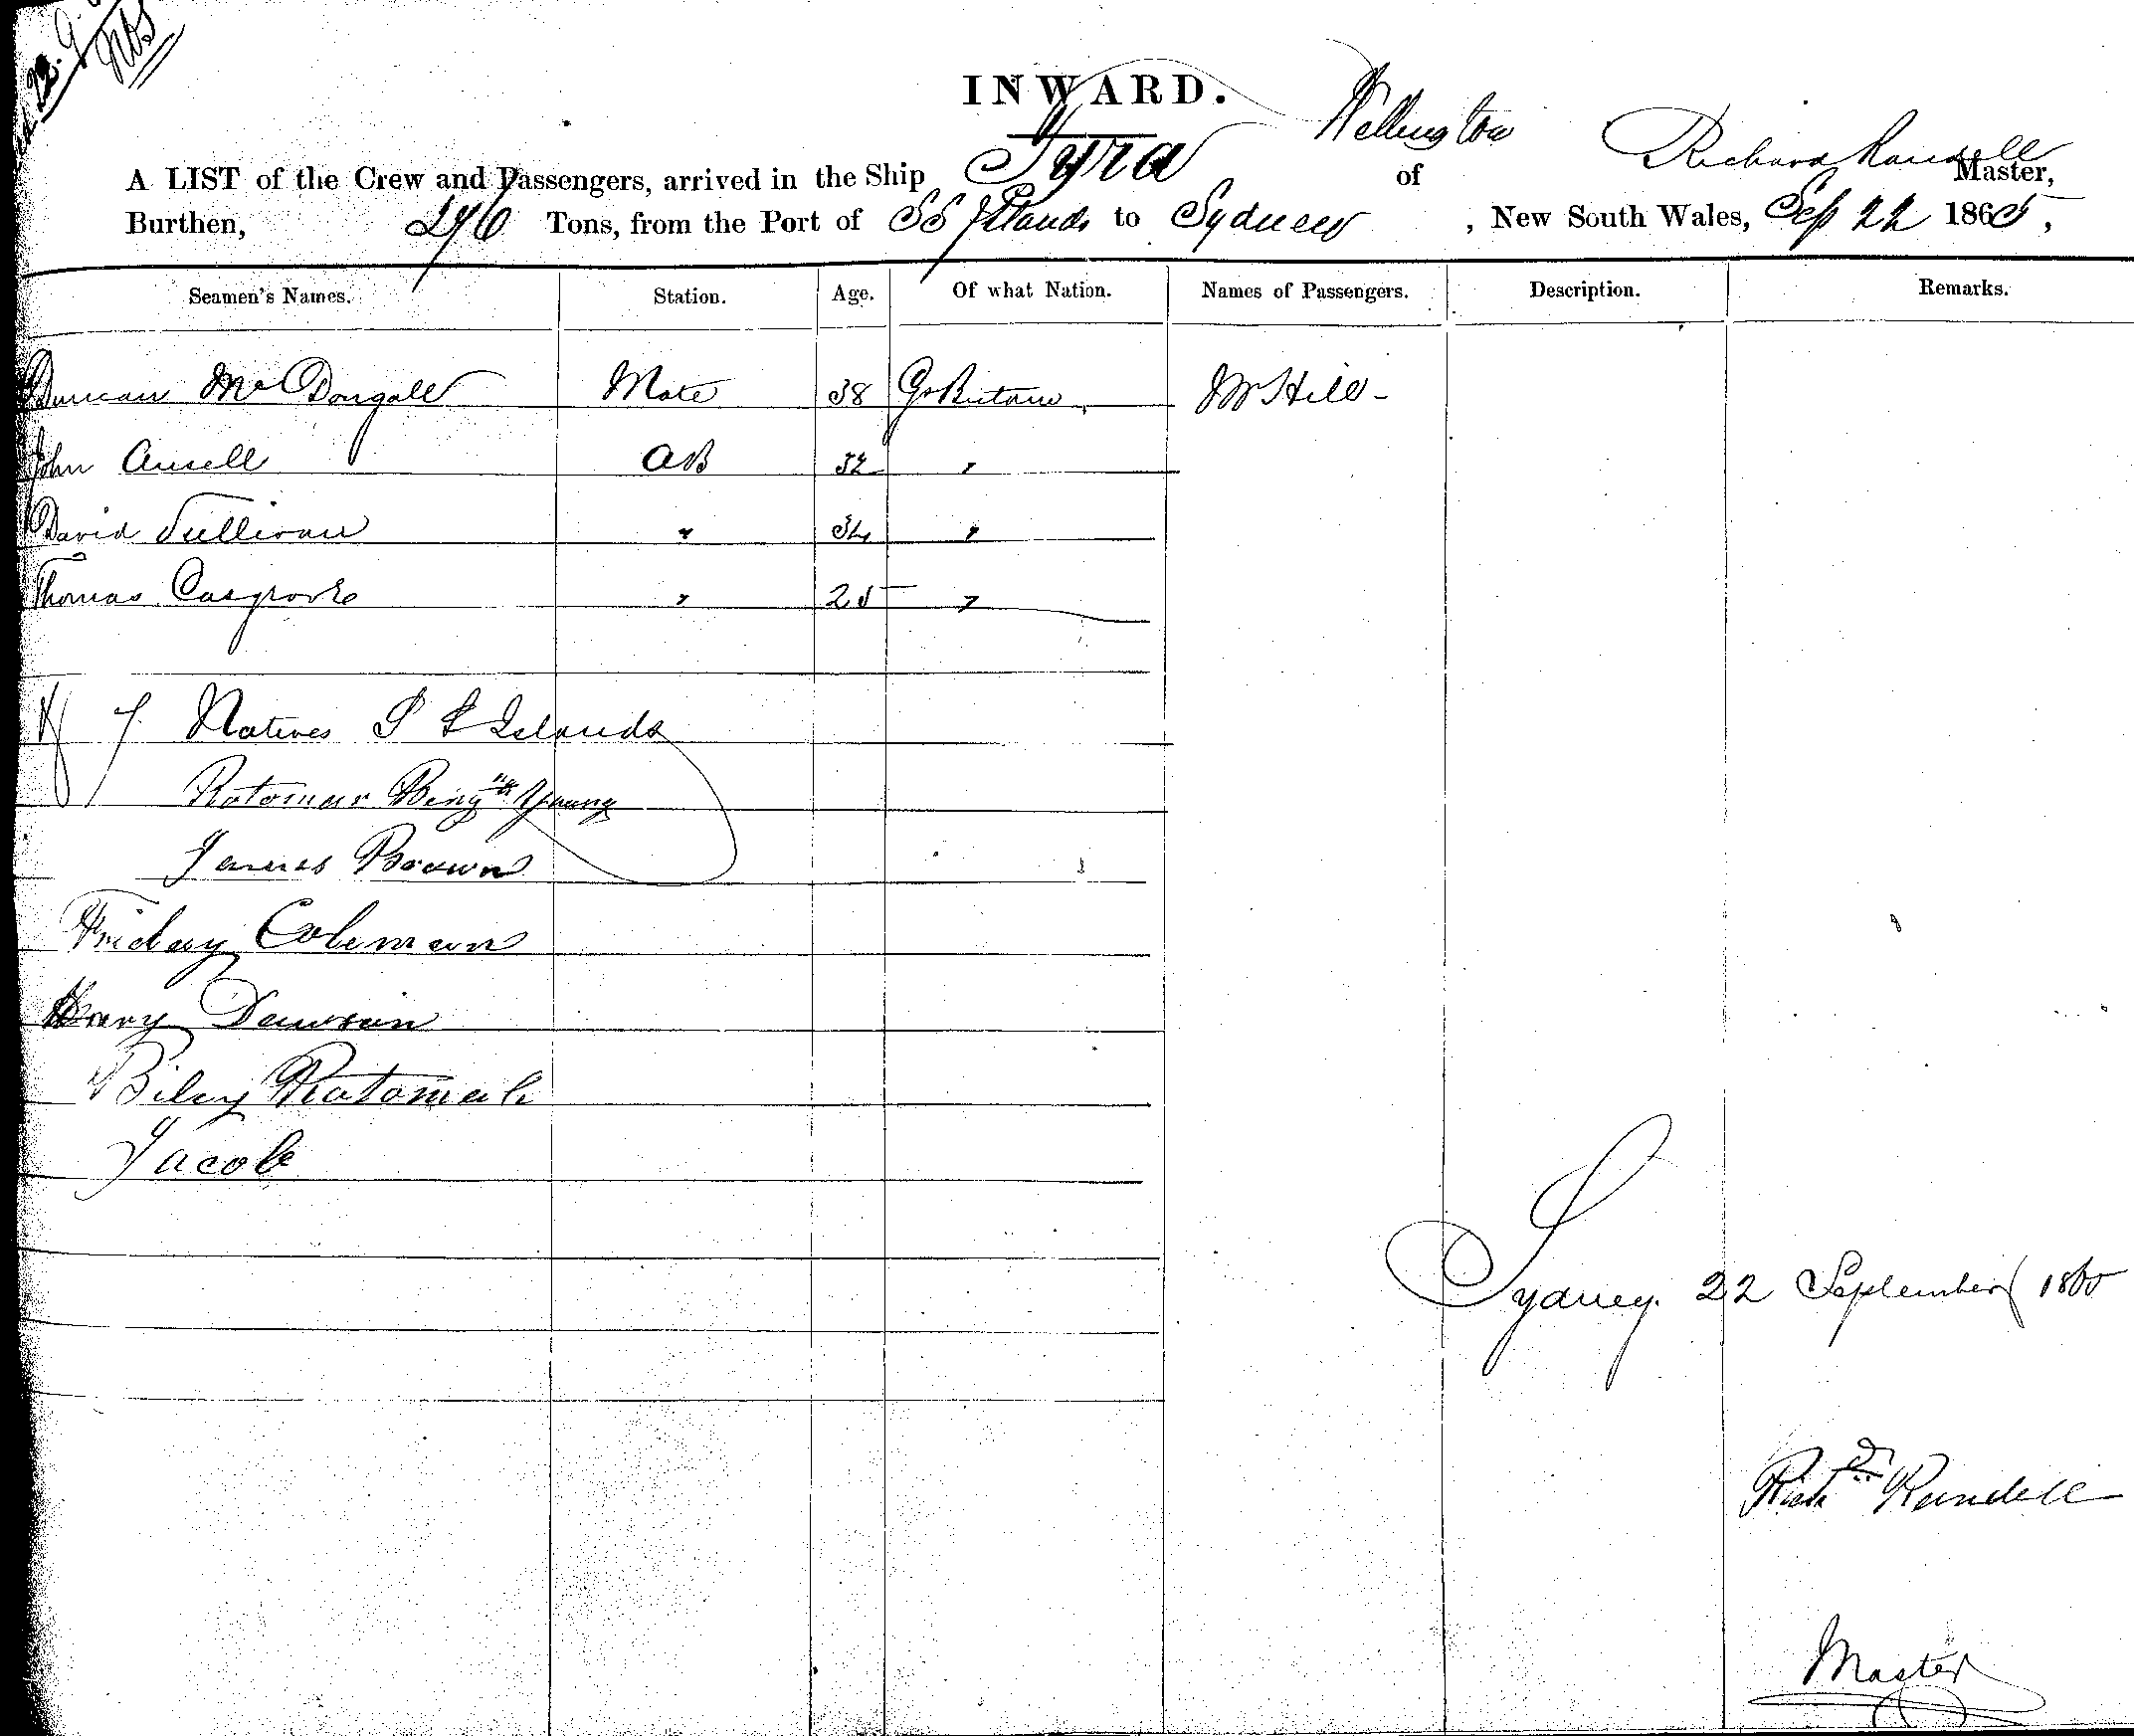 INWARD.
A LIST of the Crew and Passengers, arrived in the Ship Tyra of Wellington Richard Randell Master,
Burthen, 276 Tons, from the Port of SS Islands to Sydney, New South Wales, Sep 22 1865,
Seamen's Names. Station. Age. Of what Nation. Names of Passengers. Description. Remarks.
Duncan McDougall Mate 38 Gr Britain Mr Hill
John Ansell AB 32 "
David Sullivan " 34 "
Thomas Casgrove " 25 "
7 Natives S S Islands
Rotomar Benj Young
James Brown
Friday Coleman
Harry Dawson
Biley Rotomah
Jacob
Sydney 22 September 1865
Richd Randell
Master